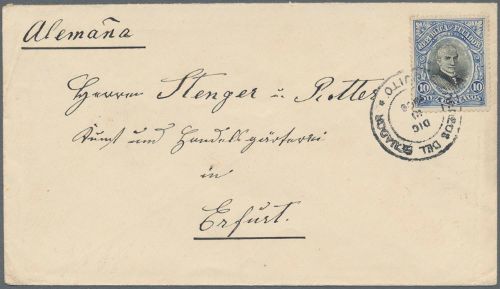 Alemaña
REPUBLICA DEL ECUADOR
10 10
Herren Stenger u. Rotter
Kunst und Handelsgärtnerei
in
Erfurt.
CORREOS DEL ECUADOR
QUITO
DIC